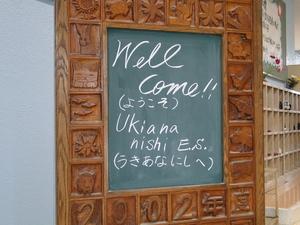 Well
Come!!
(ようこそ)
Ukiana
nishi E.S.
(うきあなにしへ)
2012年夏